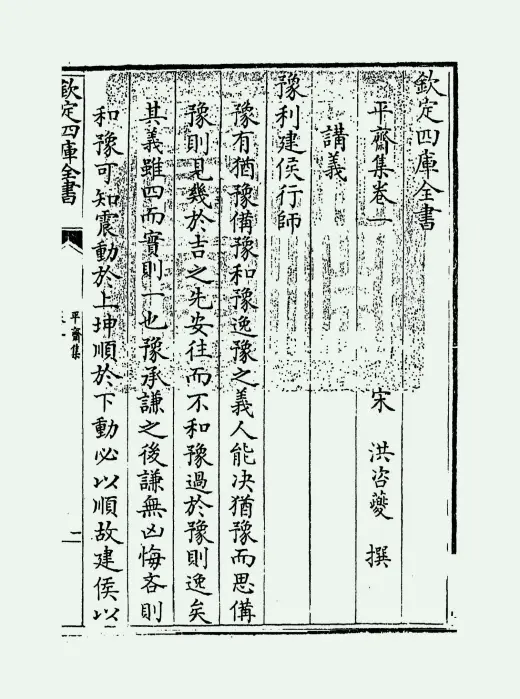 欽定四庫全書
平齋集卷一
宋 洪咨夔 撰
講義
豫利建侯行師
豫有猶豫備豫和豫逸豫之義人能决猶豫而思備
豫則見幾於吉之先安往而不和豫過於豫則逸矣
其義雖四而實則一也豫承謙之後謙無凶悔吝則
和豫可知震動於上坤順於下動必以順故建侯以
欽定四庫全書
平齋集
一